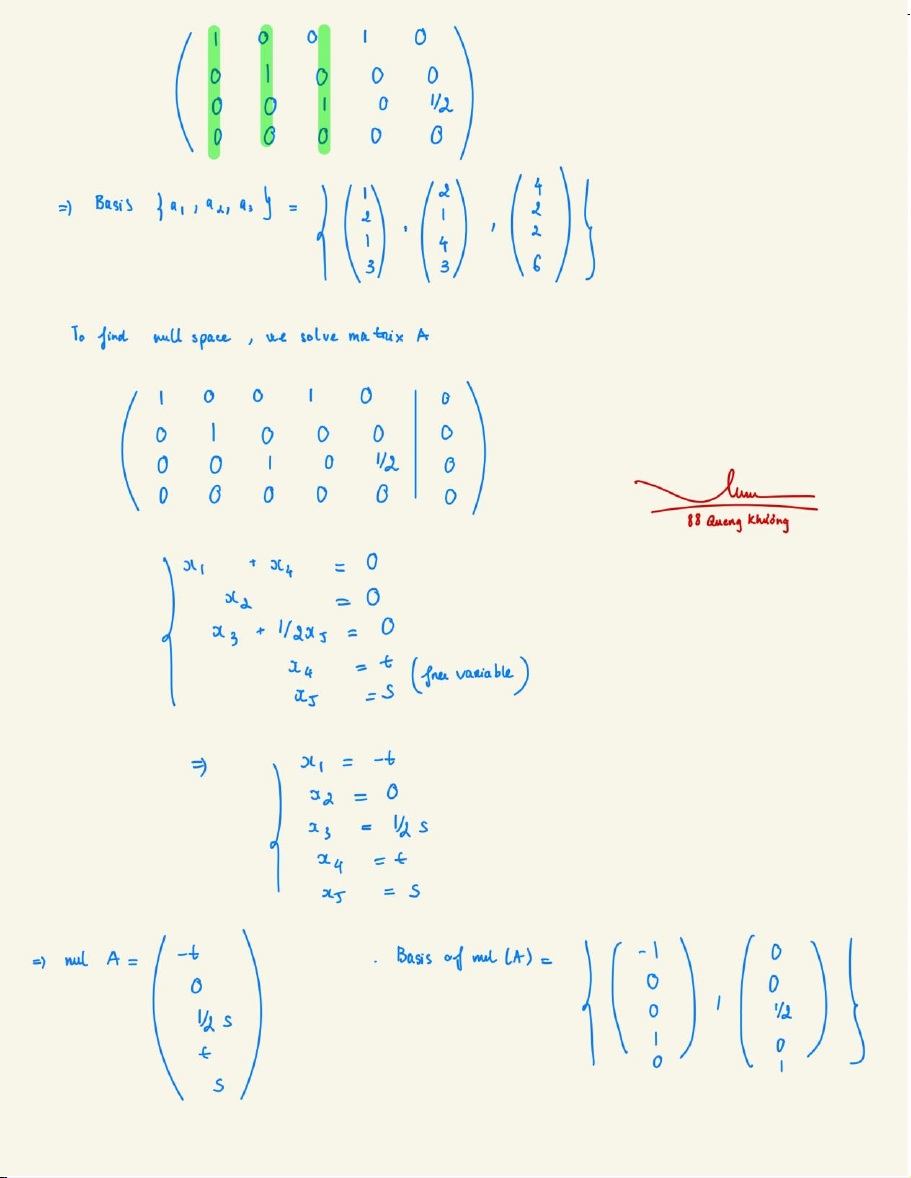 1 0 0 1 0
0 1 0 0 0
0 0 1 0 1/2
0 0 0 0 0
=) Basis {a₁, a₂, a₃} = { (1 2 1 3), (2 1 4 3), (4 2 2 6) }
To find null space, we solve matrix A
1 0 0 1 0 | 0
0 1 0 0 0 | 0
0 0 1 0 1/2 | 0
0 0 0 0 0 | 0
88 Quang Khương
x₁ + x₄ = 0
x₂ = 0
x₃ + 1/2x₅ = 0
x₄ = t (free variable)
x₅ = s
⇒ x₁ = -t
x₂ = 0
x₃ = 1/2 s
x₄ = t
x₅ = s
=) nul A = (-t 0 1/2 s t s) . Basis of nul (A) = { (-1 0 0 1 0), (0 0 1/2 0 1) }